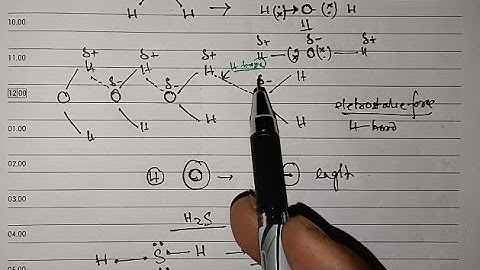 10.00
H H H (x) O (x) H
11.00
H
δ+ δ- δ+
δ+ δ+ δ+ H (x) O (x) H
H δ- H δ- H H bond δ- H
12.00 O O O
electrostatic force
H H H H H bond
01.00
02.00
03.00 H O →
H₂S
04.00
H S H
05.00